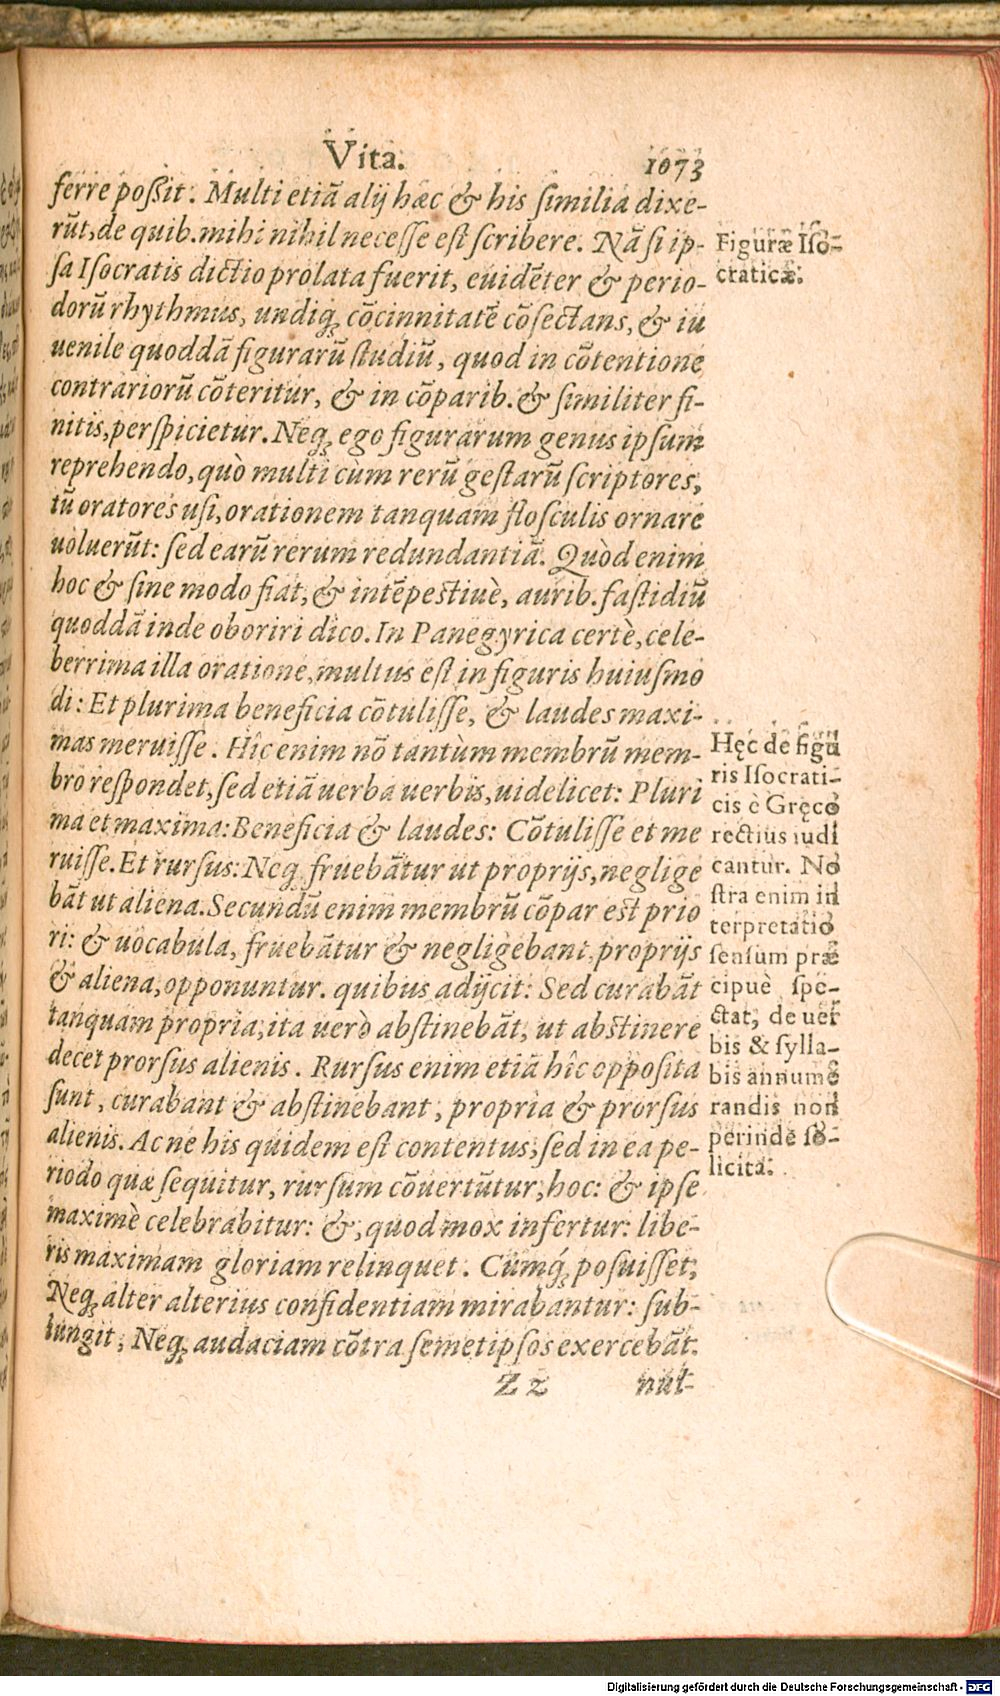 Vita. 1073
ferre poßit. Multi etiã alij hæc & his ſimilia dixe-
rũt, de quib. mihi nihil neceſſe eſt ſcribere. Nã ſi ip-
ſa Iſocratis dictio prolata fuerit, euidẽter & perio-
dorũ rhythmus, undiq; cõcinnitatẽ cõſectans, & iu
uenile quoddã figurarũ ſtudiũ, quod in cõtentione
contrariorũ cõteritur, & in cõparib. & ſimiliter fi-
nitis, perſpicietur. Neq; ego figurarum genus ipſum
reprehendo, quò multi cùm rerũ geſtarũ ſcriptores,
tũ oratores uſi, orationem tanquam floſculis ornare
uoluerũt: ſed earũ rerum redundantiã. Quòd enim
hoc & ſine modo fiat, & intẽpestiuè, aurib. faſtidiũ
quoddã inde oboriri dico. In Panegyrica certè, cele-
berrima illa oratione, multus eſt in figuris huiuſmo
di: Et plurima beneficia cõtuliſſe, & laudes maxi-
mas meruiſſe. Hîc enim nõ tantùm membrũ mem-
bro reſpondet, ſed etiã uerba uerbis, uidelicet: Pluri
ma et maxima: Beneficia & laudes: Cõtuliſſe et me
ruiſſe. Et rurſus: Neq; fruebãtur ut proprijs, neglige
bãt ut aliena. Secundũ enim membrũ cõpar est prio
ri: & uocabula, fruebãtur & negligebant, proprijs
& aliena, opponuntur. quibus adijcit: Sed curabãt
tanquam propria, ita uerò abſtinebãt, ut abstinere
decet prorſus alienis. Rurſus enim etiã hîc oppoſita
ſunt, curabant & abſtinebant, propria & prorſus
alienis. Ac ne his quidem eſt contentus, ſed in ea pe-
riodo quæ ſequitur, rurſum cõuertũtur, hoc: & ipſe
maximè celebrabitur: &, quod mox infertur: libe-
ris maximam gloriam relinquet. Cũmq́; poſuiſſet,
Neq; alter alterius confidentiam mirabantur: ſub-
iungit, Neq; audaciam cõtra ſemetipſos exercebãt.
Z z nul-
Figuræ Iſo-
craticæ.
Hęc de figu
ris Iſocrati-
cis è Gręco
rectius iudi
cantur. No
ſtra enim in
terpretatio
ſenſum præ
cipuè ſpe-
ctat, de uer
bis & ſylla-
bis annume
randis non
perinde ſo-
licita.
Digitalisierung gefördert durch die Deutsche Forschungsgemeinschaft - DFG